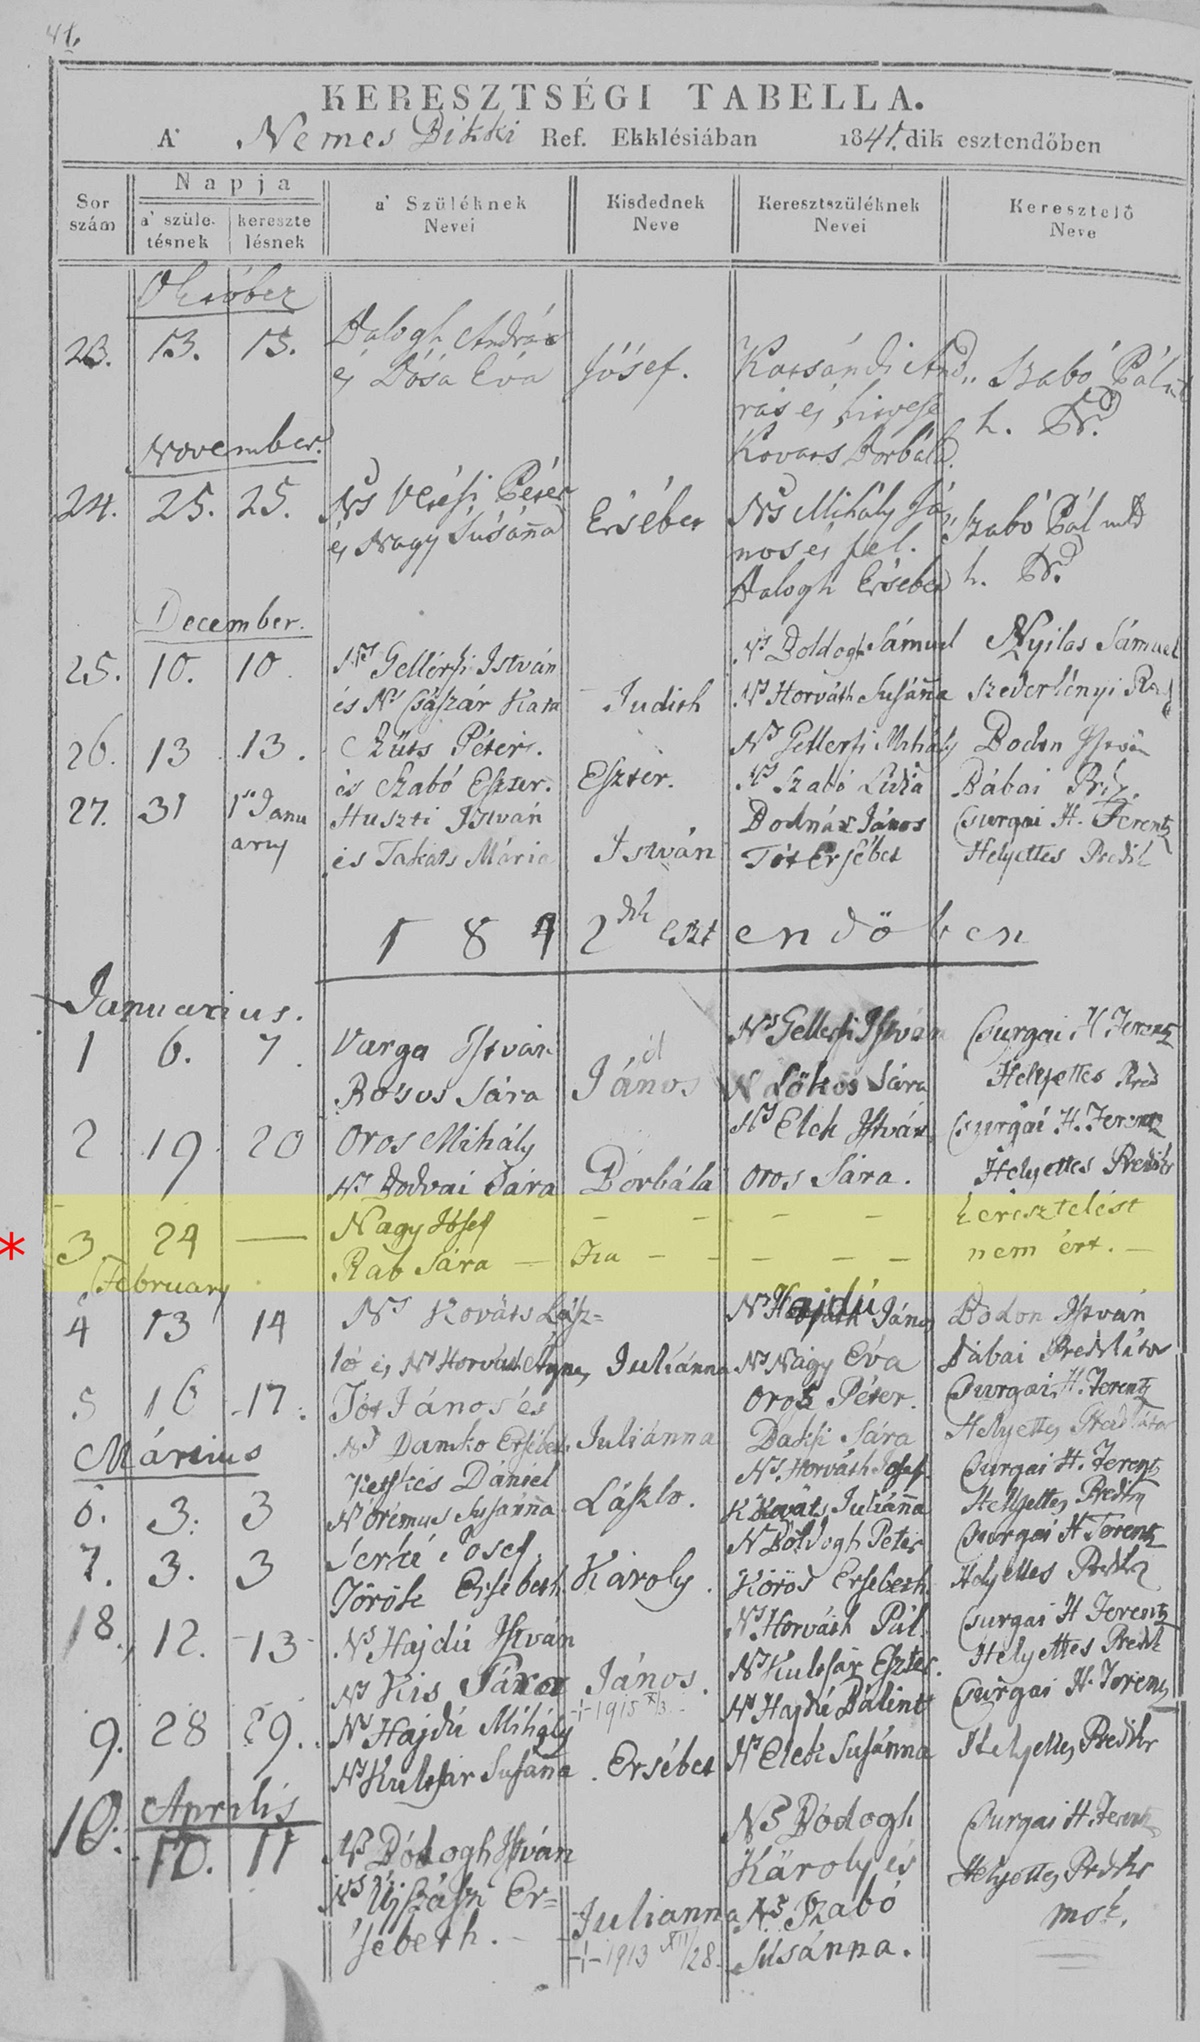 41.
KERESZTSÉGI TABELLA.
A' Nemes Bikki Ref. Ekklésiában 1841. dik esztendőben
Sor szám
Napja
a' születésnek
keresztelésnek
a' Szüléknek Nevei
Kisdednek Neve
Keresztszüléknek Nevei
Keresztelő Neve
Október
23. 13. 15. Balogh András Jósef. Karsándi And Szabó Pál
és Dósa Éva rás és h. Pr.
Kovars Borbála.
November.
24. 25. 25. Ns Veresi Péter Ersébet Ns Mihály Já Szabó Pál
és Nagy Súsánna nos és fel. h. Pr.
Balogh Ersebet
December.
25. 10. 10. Ns Gellérfi István Judith Ns Boldogh Sámuel Nyilas Sámuel
és Ns Császár Kata Ns Horváth Susánna Szederkényi
26. 13 13. Szüts Péter. Eszter. Ns Gellerfi Mihály Bodon István
és Szabó Eszter. Ns Szabó Lidia Bábai
27. 31 1ső Janu Huszti István István Bodnár János Csurgai H. Ferentz
ary és Takáts Mária Tót Ersébet Helyettes Prédik
1842dik esztendőben
Januarius.
1 6. 7. Varga István János Ns Gellerfi István Csurgai H Ferentz
Bosos Sára N Sökös Sára Helyettes Pred
2 19 20 Oros Mihály Borbála Ns Elek István Csurgai H. Ferentz
Ns Bodvai Sára Oros Sára. Helyettes Predik
* 3 24 — Nagy Jósef — — — — keresztelést
Rab Sára — Fia — — — — — nem ért. —
February
4 13 14 Ns Kováts Lász= Juliánna Ns Hajdú János Bodon István
ló és Ns Horváth Ágnes Ns Nagy Éva Bábai Predikátor
5 16 17. Tót János és Juliánna Oros Péter. Csurgai H. Ferentz
Ns Damko Ersébet Baksi Sára Helyettes Predikátor
Mártius
6. 3. 3 Ketskés Dániel László. Ns. Horváth Josef. Csurgai H. Ferentz
N Oremus Susánna Kováts Juliánna Helyettes Predik
7. 3. 3 Josef. Károly. N Boldogh Péter Csurgai H Ferentz
Török Ersébeth Körösi Ersebeth Helyettes Predik
18. 12. 13 Ns Hajdú István János. Ns Horváth Pál Csurgai H Ferentz
Ns Kis Sára + 1915 Ns Kultsár Eszter. Helyettes Predik
9. 28 29. Ns Hajdú Mihály Ersébet Ns Hajdú Bálint Csurgai H. Ferentz
Ns Kultsár Susánna Ns Elek Susánna Helyettes Predikr
Aprilis
10. 10. 11 Ns Bódogh István Julianna Ns Bódogh Csurgai H. Ferentz
Ns Ujszászi Er= +1913 XII/28. Károly és Helyettes Predikr
sébeth. Ns Szabó mok.
Súsánna.